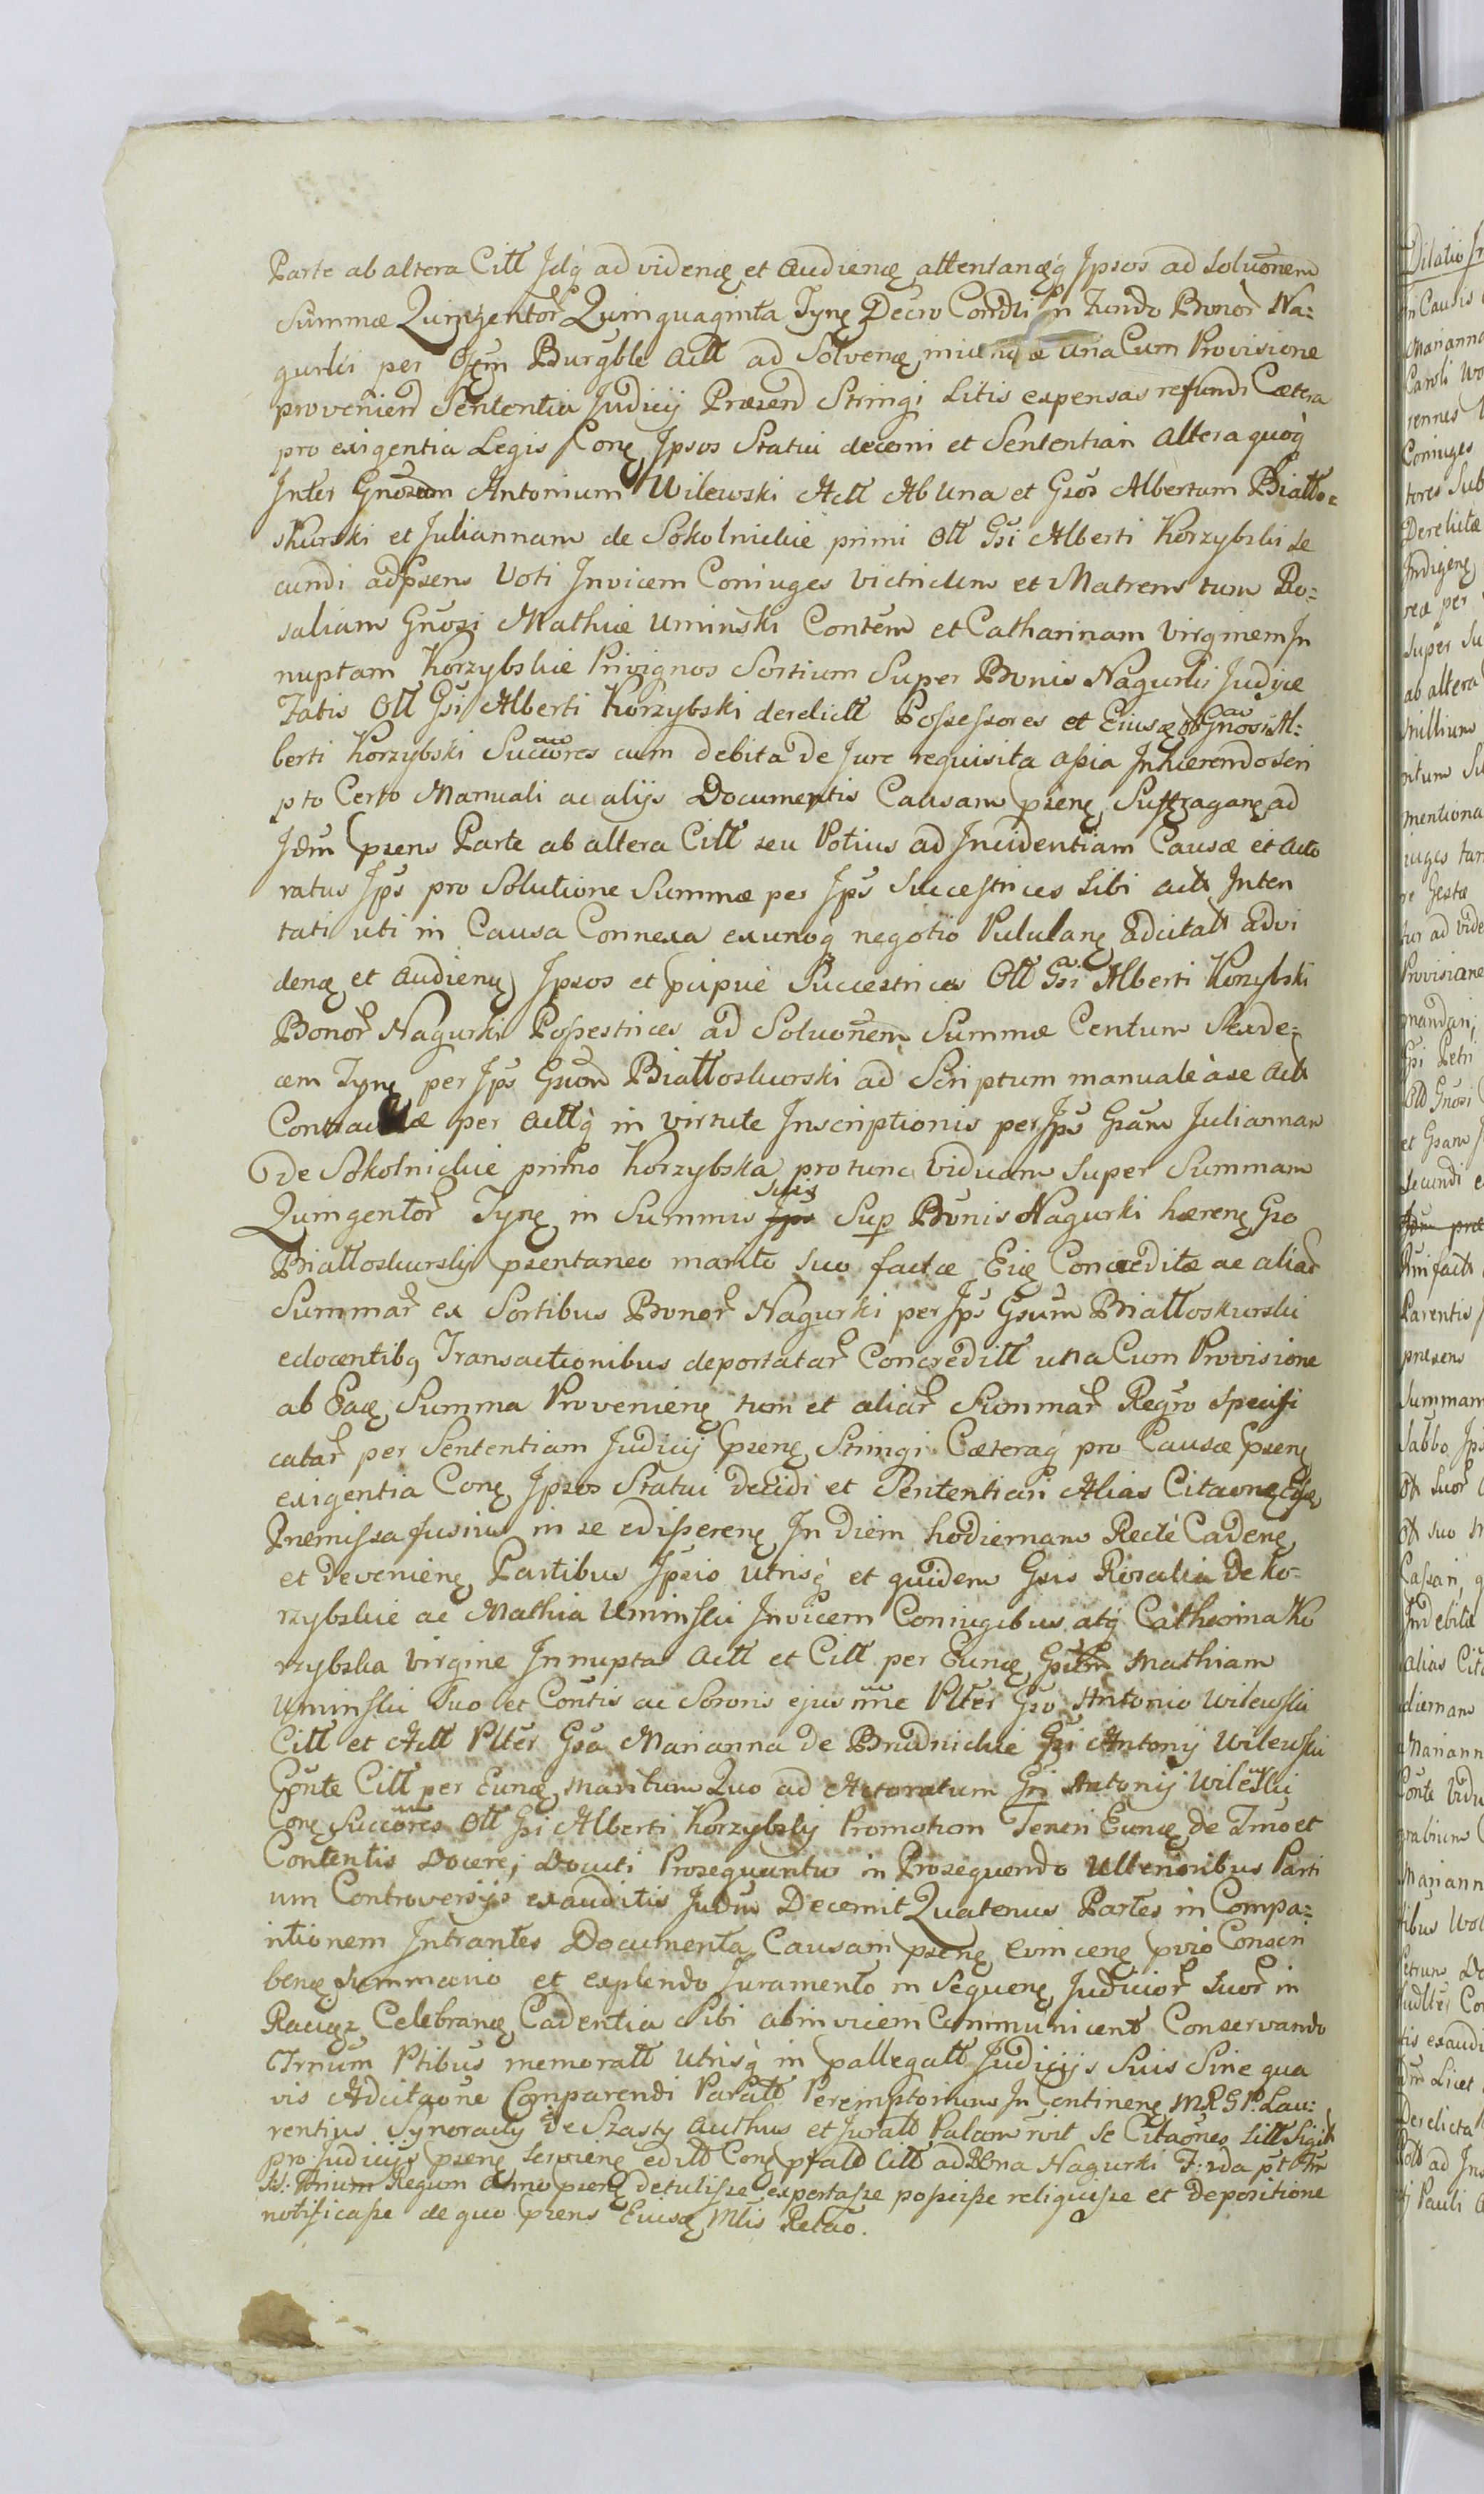 Parte ab altera Citt Jdq ad videnę et Audienę attentanęq Ipsos ad Soluonem
Summæ Quingentor Quinquaginta Tynę Decro Comdli in Fundo Bonor Na=
gurki per Offm Burgble Actt ad Solvenę una Cum Provisione
provenien Sententia Judicij Præsen Stringi Litis expensas refundi Cætera
pro exigentia Legis Conę Ipsos Statui decerni et Sententiari Altera quoq
Inter Gnosum Antonium Wilewski Actt Ab una et Gsos Albertum Biatto=
skurski et Juliannam de Sokolnickie primi Ott Gsi Alberti Korzybski se
cundi adpsens Voti Invicem Coniuges Victricem et Matrem tum Ro=
saliam Gnosi Mathiæ Uminski Contem et Catharinam Virginem In
nuptam Korzybskie Privignos Sortium Super Bonis Nagurki Judice
Fatis Ott Gsi Alberti Korzybski derelictt Possessores et Eiusdę Gnosi Al=
berti Korzybski Succores cum debita de Jure requisita assia Inhærendo Scri
pto Certo Manuali ac alijs Documentis Causam psenę Suffraganę ad
Idm psens Parte ab altera Citt seu Potius ad Incidentiam Causæ et Acto
ratus Ips pro Solutione Summæ per Ips Successtrices Sibi actt Inten
tati uti in Causa Connexa ex unoq negotio Pululanę adcitatt advi
denę et Audienę Ipsos et pcipue Successtrices Ott Gsi Alberti Korzybski
Bonor Nagurki Possestrices ad Soluonem Summæ Centum Sexde=
cem Tynę per Ips Gsum Biattoskurski ad Scriptum manuale à se actt
Contractæ per Acttq in virtute Inscriptionis per Ips Gsam Juliannam
de Sokolnickie primo Korzybska pro tunc Viduam Super Summam
Quingentor Tynę in Summis Ips suis Sup Bonis Nagurki hærenę Gso
Biattoskursky psentaneo marito suo factæ Eię Concreditæ ac aliar
Summar ex Sortibus Bonor Nagurki per Ips Gsum Biattoskurski
edocentibq Transactionibus deportatar Concreditt una Cum Provisione
ab Eadę Summa Provenienę tum et aliar Summar Regro specifi
catar per Sententiam Judicij psenę Stringi Cæteraq pro Causæ psenę
exigentia Conę Ipsos Statui decidi et Sententiari Alias Citaonę
Præmissa fusius in se edisserenę In diem hodiernam Recte Cadenę
et devenienę Partibus Ipsis utrisq et quidem Gsis Rosalia de Ko-
rzybskie ac Mathia Uminski Invicem Coniugibus atq Catharina Ko
rzybska Virgine Innupta Actt et Citt per Eundę Gsum Mathiam
Uminski Suo et Contis ac Sororis ejus nne Plter Gso Antonio Wilewski
Citt et Actt Plter Gsa Marianna de Brudnickie Gsi Antonij Wilewski
Conte Citt per Eundę maritum Quo ad Actoratum Gsi Antonij Wilewski
Conę Succores Ott Gsi Alberti Korzybskij Promotum Teneri Eundę de Tmo et
Contentis Docere; Docuti Prosequantur in Prosequendo Ulterioribus Parti
um Controversijs exauditis Judm Decernit Quatenus Partes in Compa=
ritionem Intrantes Documenta Causam psenę Evincenę pvio Conscri
benę Summario et explendo Juramento in Sequenę Judicior Suor in
Raciąz Celebranę Cadentia Sibi abinvicem Communicent Conservando
Trnum Ptibus memoratt utrisq in pallegatt Judicijs Suis Sine qua
vis Adcitaone Comparendi Paratt Peremptorium In Continenę MRSP. Lau=
rentius Synoracky de Szasty Authus et Juratt Palam rvit Se Citaones Litt Sigitt
pro Judicijs psenę servienę editt Conę pfatt Citt ad Bna Nagurki F: 2da pt Fm
Ss: Trium Regum Anno psenę detulisse exportasse posuisse reliquisse et depositione
notificasse de quo psens Eiusdę Mtis Relao.